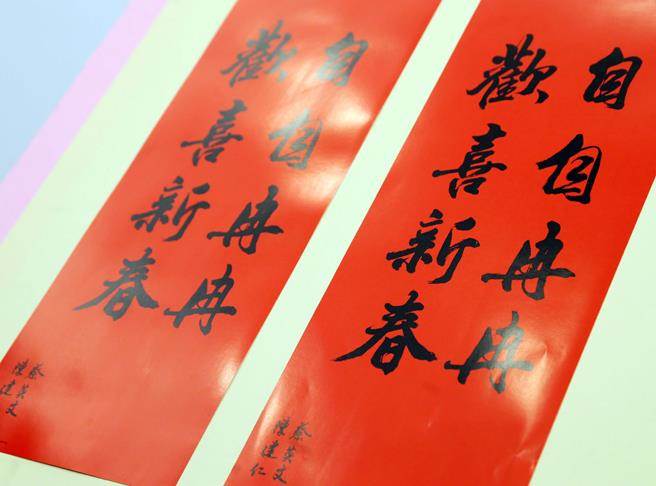 自自冉冉
歡喜新春
蔡英文
陳建仁
自自冉冉
歡喜新春
蔡英文
陳建